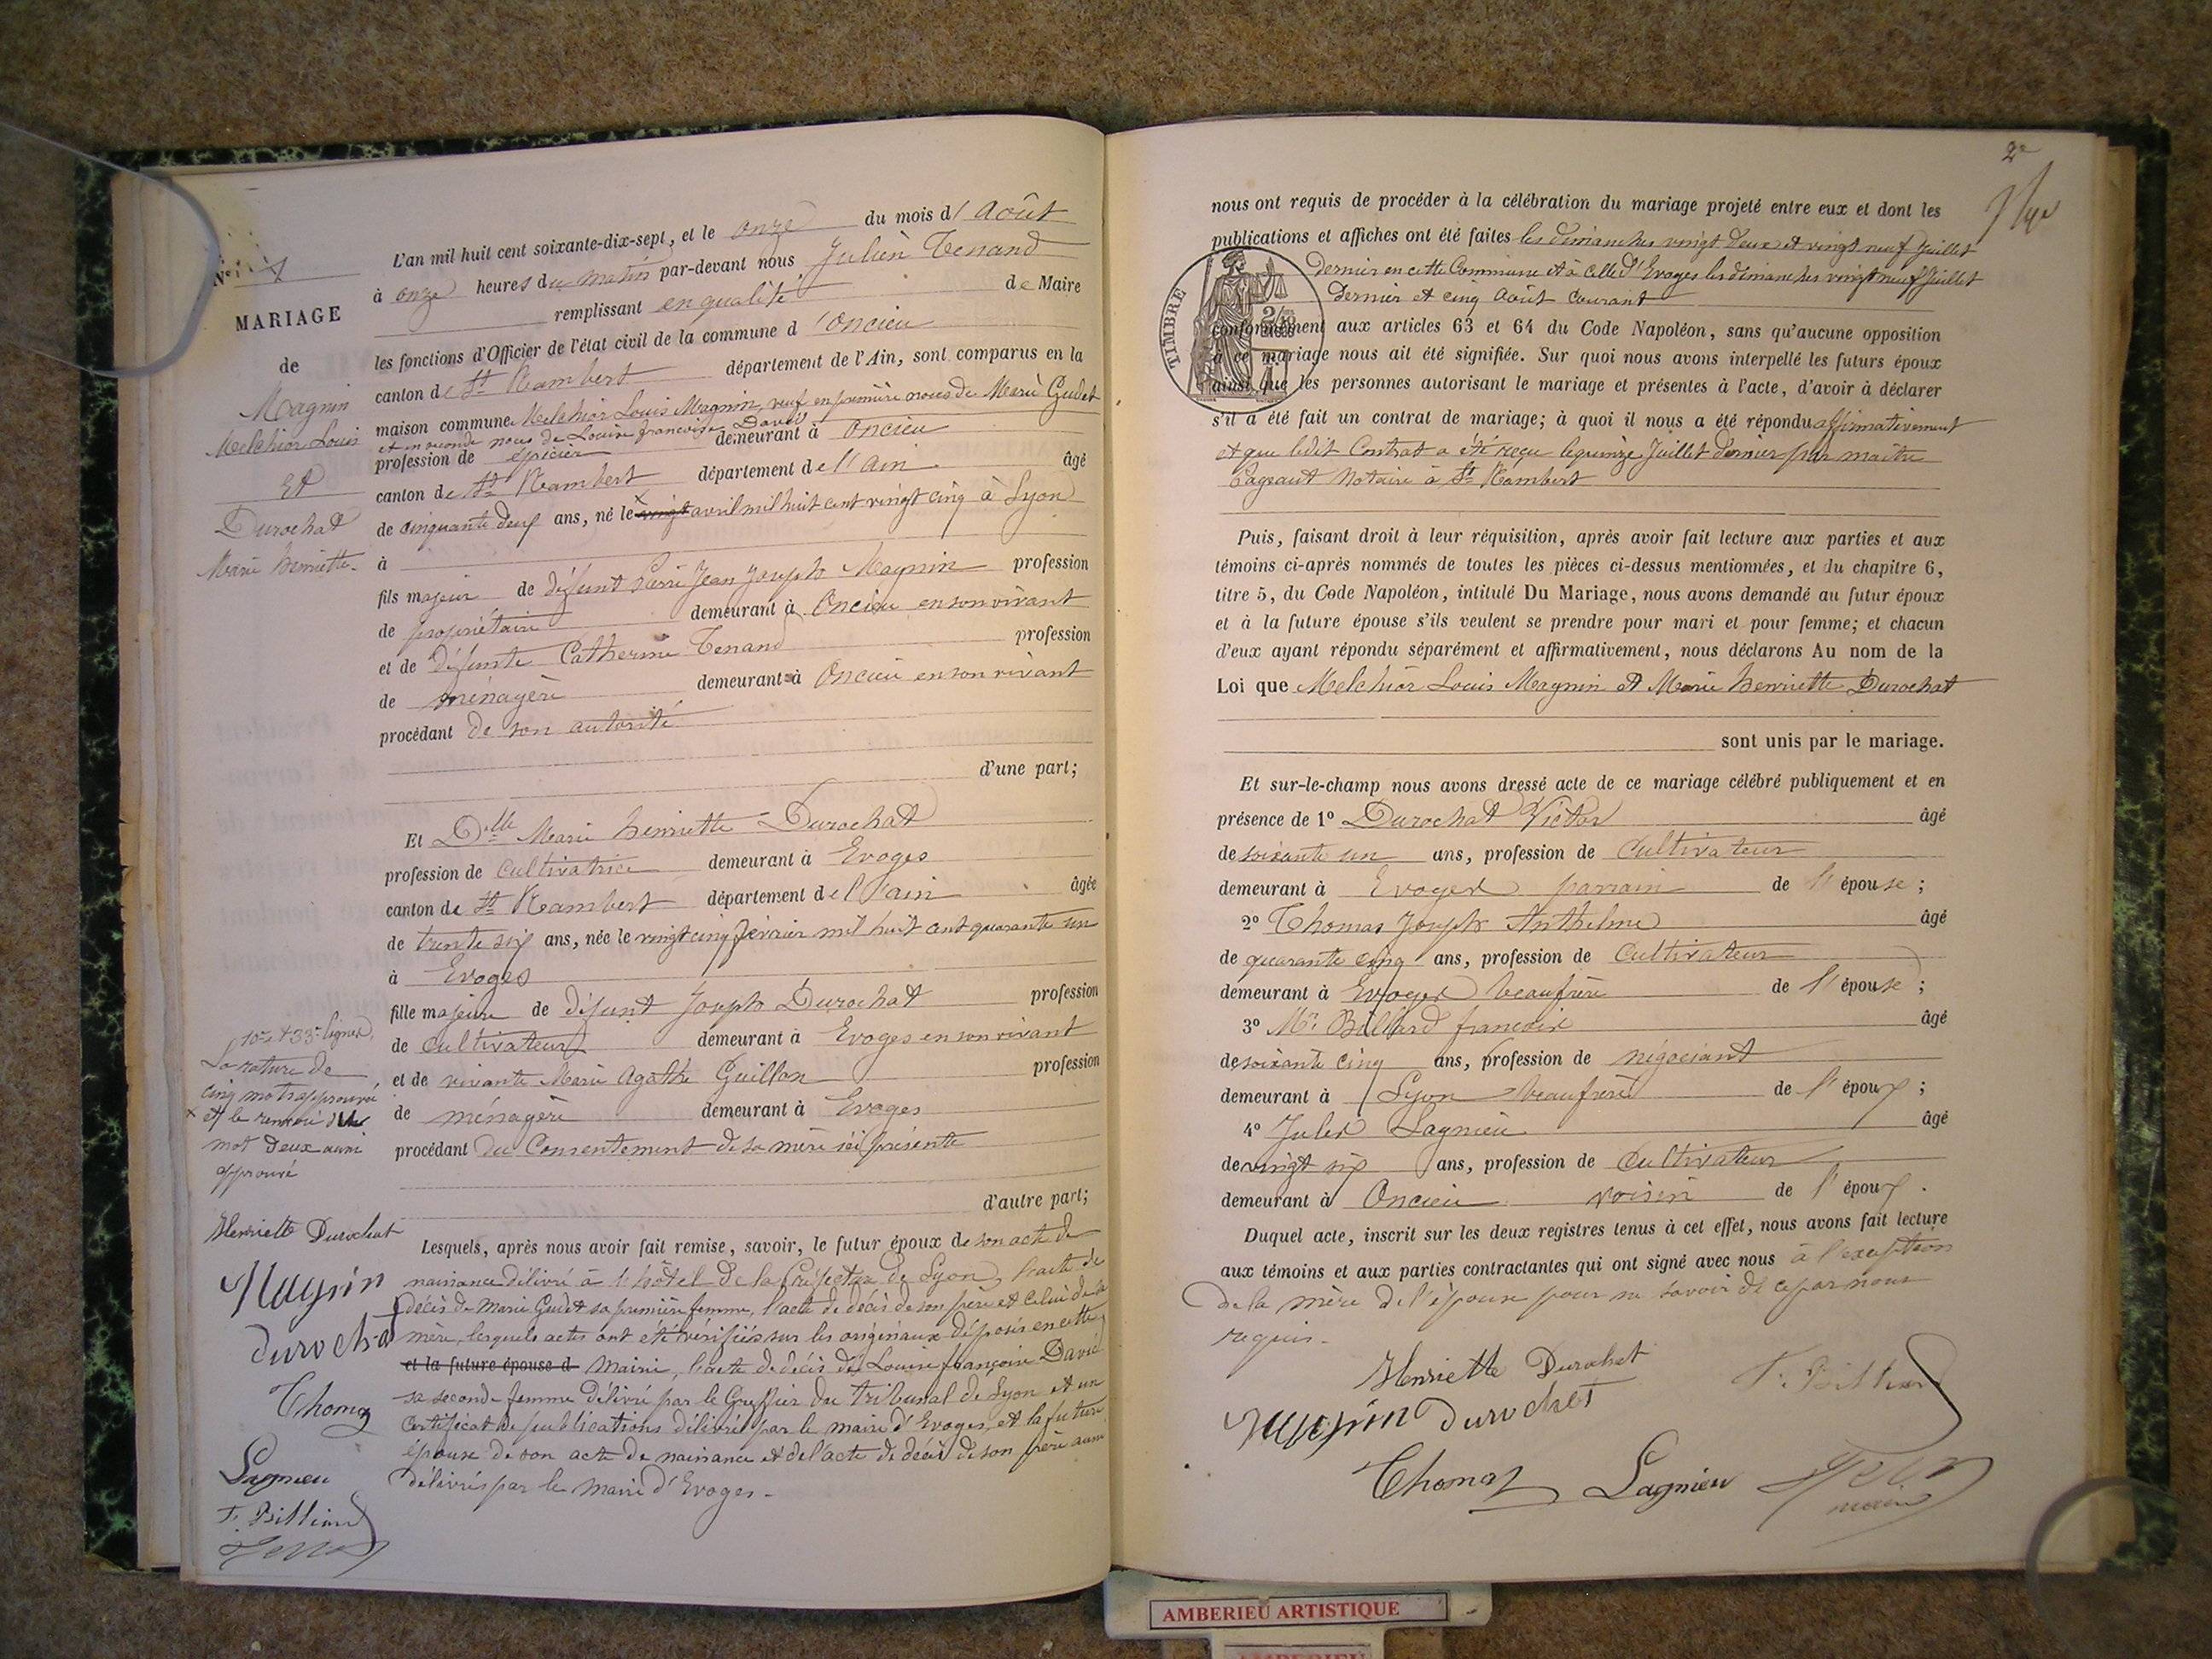 MARIAGE
de
Magnin
Melchior Louis
Et
Durochat
Marie henriette
L'an mil huit cent soixante-dix-sept, et le onze du mois d'Août
à onze heures du matin par-devant nous Julien Tenand
remplissant en qualité de Maire
les fonctions d'Officier de l'état civil de la commune d'Oncieu
canton de St Rambert département de l'Ain, sont comparus en la
maison commune Melchior Louis Magnin, veuf en première noces de Marie Gudet
et en seconde noces de Louise françoise David
profession de épicier demeurant à Oncieu
canton de St Rambert département de l'ain âgé
de cinquante deux ans, né le vingt avril mil huit cent vingt cinq à Lyon
à
fils majeur de défunt Pierre Jean Joseph Magnin profession
de propriétaire demeurant à Oncieu en son vivant
et de défunte Catherine Tenand profession
de ménagère demeurant à Oncieu en son vivant
procédant de son autorité
d'une part;
Et Delle Marie henriette Durochat
profession de cultivatrice demeurant à Evoges
canton de St Rambert département de l'ain âgée
de trente six ans, née le vingt cinq février mil huit cent quarante un
à Evoges
fille majeure de défunt Joseph Durochat profession
de cultivateur demeurant à Evoges en son vivant
et de vivante Marie Agathe Guillon profession
de ménagère demeurant à Evoges
procédant du Consentement de sa mère ici présente
d'autre part;
Lesquels, après nous avoir fait remise, savoir, le futur époux de son acte de
naissance délivré à l'hôtel de la Préfecture de Lyon, l'acte de
décès de Marie Gudet sa première femme, l'acte de décès de son père et celui de sa
mère, lesquels actes ont été vérifiés sur les originaux déposés en cette
et la future épouse d Mairie, l'acte de décès de Louise françoise David
sa seconde femme délivré par le Greffier du tribunal de Lyon et un
certificat de publications délivré par le maire d'Evoges, et la future
épouse de son acte de naissance et de l'acte de décès de son père aussi
délivrés par le maire d'Evoges.
10e & 33e lignes
La rature de
cinq mots approuvé
et le renvoi du
mot deux aussi
approuvé
Henriette Durochat
Magnin
durochat
Thomas
Lagnieu
F. Billiard
2e
nous ont requis de procéder à la célébration du mariage projeté entre eux et dont les
publications et affiches ont été faites les dimanches vingt deux et vingt neuf Juillet
dernier en cette Commune et à celle d'Evoges les dimanches vingt neuf Juillet
dernier et cinq Août courant
TIMBRE
conformément aux articles 63 et 64 du Code Napoléon, sans qu'aucune opposition
à ce mariage nous ait été signifiée. Sur quoi nous avons interpellé les futurs époux
ainsi que les personnes autorisant le mariage et présentes à l'acte, d'avoir à déclarer
s'il a été fait un contrat de mariage; à quoi il nous a été répondu affirmativement
et que ledit Contrat a été reçu le quinze Juillet dernier par maître
Notaire à St Rambert
Puis, faisant droit à leur réquisition, après avoir fait lecture aux parties et aux
témoins ci-après nommés de toutes les pièces ci-dessus mentionnées, et du chapitre 6,
titre 5, du Code Napoléon, intitulé Du Mariage, nous avons demandé au futur époux
et à la future épouse s'ils veulent se prendre pour mari et pour femme; et chacun
d'eux ayant répondu séparément et affirmativement, nous déclarons Au nom de la
Loi que Melchior Louis Magnin et Marie henriette Durochat
sont unis par le mariage.
Et sur-le-champ nous avons dressé acte de ce mariage célébré publiquement et en
présence de 1° Durochat Victor âgé
de soixante un ans, profession de Cultivateur
demeurant à Evoges parrain de l'épouse;
2° Thomas Joseph Anthelme âgé
de quarante cinq ans, profession de Cultivateur
demeurant à Evoges beaufrère de l'épouse;
3° Mr Billiard françois âgé
de soixante cinq ans, profession de négociant
demeurant à Lyon beaufrère de l'époux;
4° Jules Lagnieu âgé
de vingt six ans, profession de Cultivateur
demeurant à Oncieu voisin de l'époux.
Duquel acte, inscrit sur les deux registres tenus à cet effet, nous avons fait lecture
aux témoins et aux parties contractantes qui ont signé avec nous à l'exception
de la mère de l'épouse pour ne savoir de ce par nous
requis.
Henriette Durochat
F. Billiard
Magnin durochat
Thomas Lagnieu
maire
AMBERIEU ARTISTIQUE
AMBERIEU